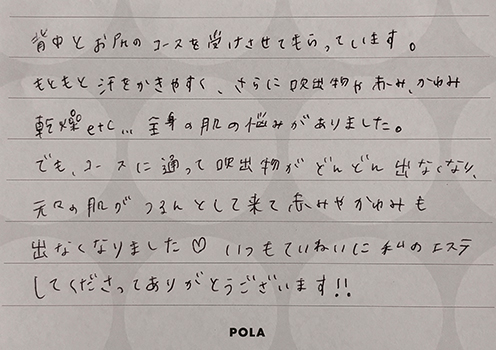 背中とお尻のコースを受けさせてもらっています。
もともと汗をかきやすく、さらに吹出物や赤み、かゆみ
乾燥etc... 全身の肌の悩みがありました。
でも、コースに通って吹出物がどんどん出なくなり、
元々の肌がつるんとして来て赤みやかゆみも
出なくなりました♡ いつもていねいに私のエステ
してくださってありがとうございます!!
POLA